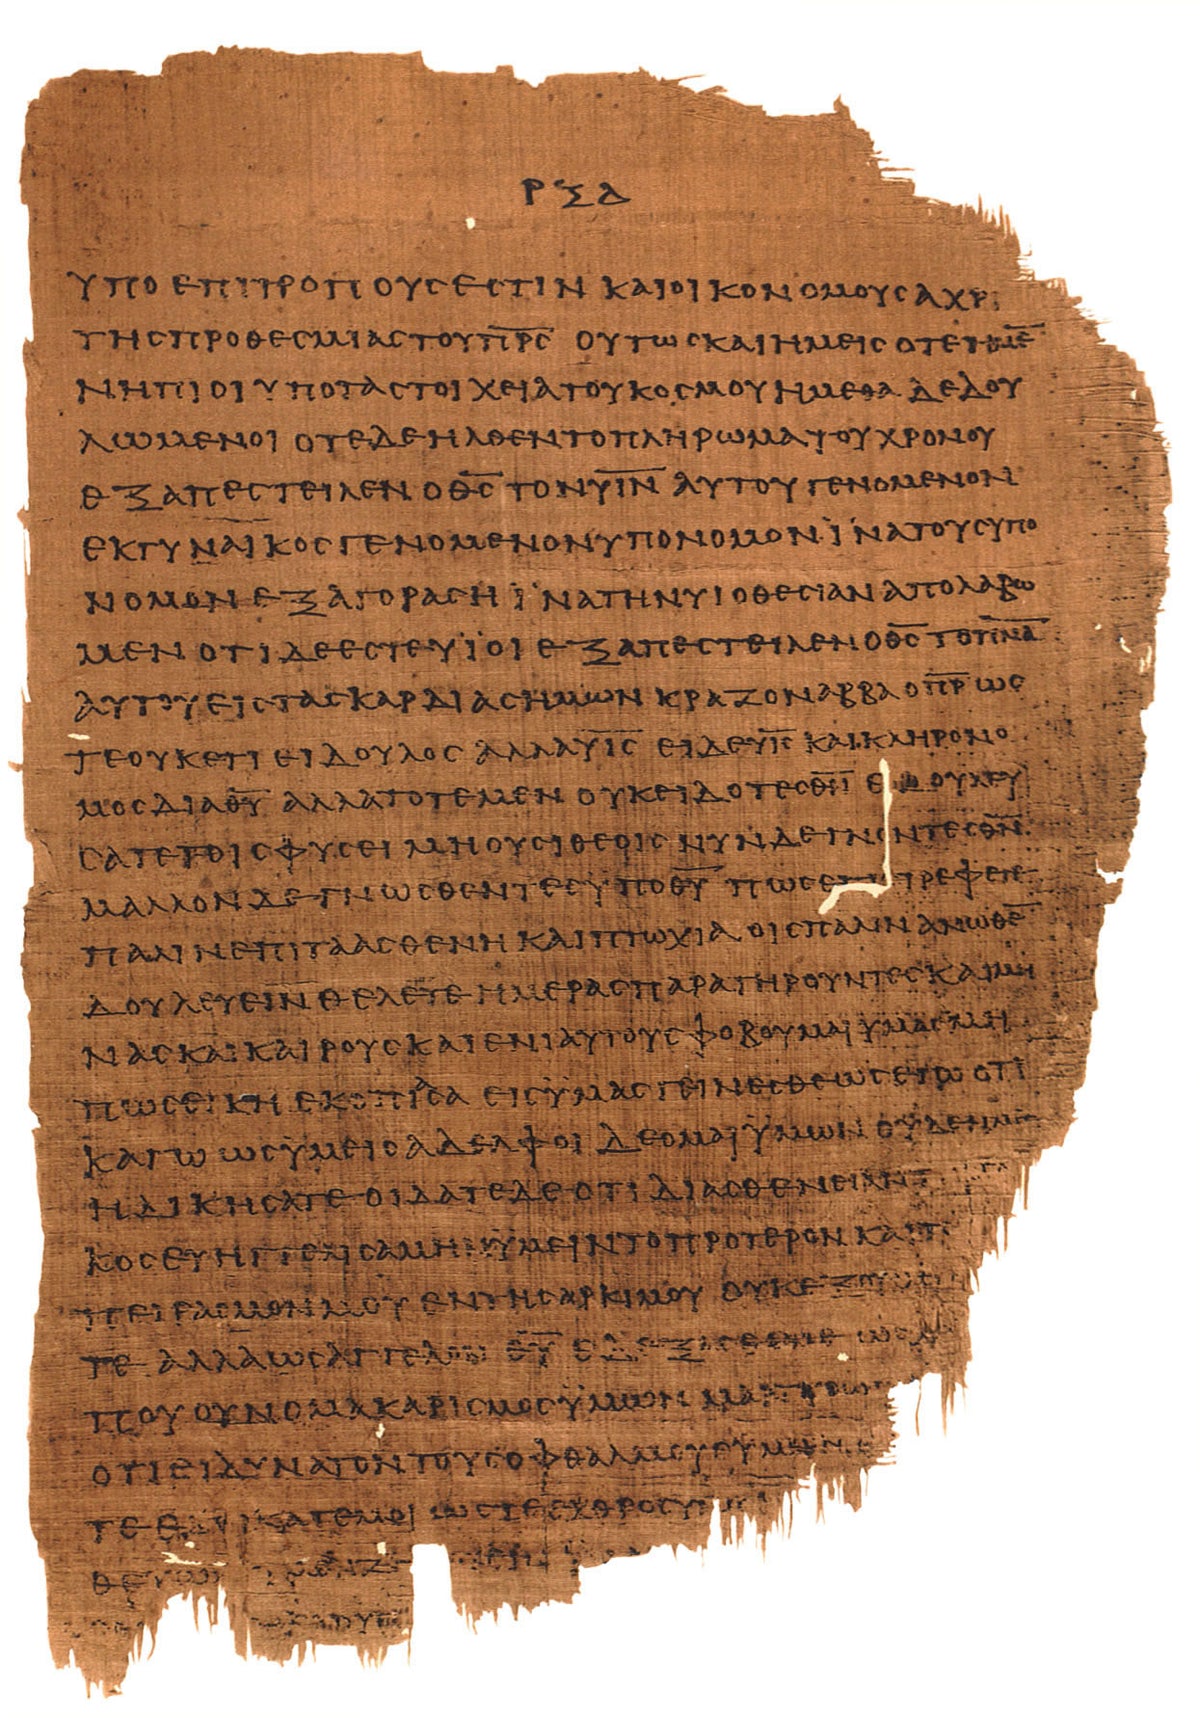 ΡΞΔ
ΥΠΟ ΕΠΙΤΡΟΠΟΥΣ ΕΣΤΙΝ ΚΑΙ ΟΙΚΟΝΟΜΟΥΣ ΑΧΡΙ
ΤΗΣ ΠΡΟΘΕΣΜΙΑΣ ΤΟΥ Π̅Ρ̅Σ̅ ΟΥΤΩΣ ΚΑΙ ΗΜΕΙΣ ΟΤΕ ΗΜΕ̅
ΝΗΠΙΟΙ ΥΠΟ ΤΑ ΣΤΟΙΧΕΙΑ ΤΟΥ ΚΟΣΜΟΥ ΗΜΕΘΑ ΔΕΔΟΥ
ΛΩΜΕΝΟΙ ΟΤΕ ΔΕ ΗΛΘΕΝ ΤΟ ΠΛΗΡΩΜΑ ΤΟΥ ΧΡΟΝΟΥ
ΕΞΑΠΕΣΤΕΙΛΕΝ Ο Θ̅Σ̅ ΤΟΝ Υ̅Ι̅Ν̅ ΑΥΤΟΥ ΓΕΝΟΜΕΝΟΝ
ΕΚ ΓΥΝΑΙΚΟΣ ΓΕΝΟΜΕΝΟΝ ΥΠΟ ΝΟΜΟΝ ΪΝΑ ΤΟΥΣ ΥΠΟ
ΝΟΜΟΝ ΕΞΑΓΟΡΑΣΗ ΪΝΑ ΤΗΝ ΥΙΟΘΕΣΙΑΝ ΑΠΟΛΑΒΩ
ΜΕΝ ΟΤΙ ΔΕ ΕΣΤΕ ΥΪΟΙ ΕΞΑΠΕΣΤΕΙΛΕΝ Ο Θ̅Σ̅ ΤΟ Π̅Ν̅Α̅
ΑΥΤΟΥ ΕΙΣ ΤΑΣ ΚΑΡΔΙΑΣ ΗΜΩΝ ΚΡΑΖΟΝ ΑΒΒΑ Ο Π̅Ρ̅ ΩΣ
ΤΕ ΟΥΚΕΤΙ ΕΙ ΔΟΥΛΟΣ ΑΛΛΑ Υ̅Ι̅Σ̅ ΕΙ ΔΕ Υ̅Ι̅Σ̅ ΚΑΙ ΚΛΗΡΟΝΟ
ΜΟΣ ΔΙΑ Θ̅Υ̅ ΑΛΛΑ ΤΟΤΕ ΜΕΝ ΟΥΚ ΕΙΔΟΤΕΣ Θ̅Ν̅ ΕΔΟΥΛΕΥ
ΣΑΤΕ ΤΟΙΣ ΦΥΣΕΙ ΜΗ ΟΥΣΙ ΘΕΟΙΣ ΝΥΝ ΔΕ ΓΝΟΝΤΕΣ Θ̅Ν̅
ΜΑΛΛΟΝ ΔΕ ΓΝΩΣΘΕΝΤΕΣ ΥΠΟ Θ̅Υ̅ ΠΩΣ ΕΠΙΣΤΡΕΦΕΤΕ
ΠΑΛΙΝ ΕΠΙ ΤΑ ΑΣΘΕΝΗ ΚΑΙ ΠΤΩΧΙΑ ΟΙΣ ΠΑΛΙΝ ΑΝΩΘΕ̅
ΔΟΥΛΕΥΕΙΝ ΘΕΛΕΤΕ ΗΜΕΡΑΣ ΠΑΡΑΤΗΡΟΥΝΤΕΣ ΚΑΙ ΜΗ
ΝΑΣ ΚΑΙ ΚΑΙΡΟΥΣ ΚΑΙ ΕΝΙΑΥΤΟΥΣ ΦΟΒΟΥΜΑΙ ΥΜΑΣ ΜΗ
ΠΩΣ ΕΙΚΗ ΕΚΟΠΙΑΣΑ ΕΙΣ ΫΜΑΣ ΓΕΙΝΕΣΘΕ ΩΣ ΕΓΩ ΟΤΙ
ΚΑΓΩ ΩΣ ΫΜΕΙΣ ΑΔΕΛΦΟΙ ΔΕΟΜΑΙ ΫΜΩΝ ΟΥΔΕΝ ΜΕ
ΗΔΙΚΗΣΑΤΕ ΟΙΔΑΤΕ ΔΕ ΟΤΙ ΔΙ ΑΣΘΕΝΕΙΑΝ
ΚΟΣ ΕΥΗΓΓΕΛΙΣΑΜΗΝ ΫΜΕΙΝ ΤΟ ΠΡΟΤΕΡΟΝ ΚΑΙ Τ
ΠΕΙΡΑΣΜΟΝ ΜΟΥ ΕΝ ΤΗ ΣΑΡΚΙ ΜΟΥ ΟΥΚ ΕΞΟΥ
ΤΕ ΑΛΛΑ ΩΣ ΑΓΓΕΛΟΝ Θ̅Υ̅ ΕΔΕΞΑΣΘΕ ΜΕ
ΠΟΥ ΟΥΝ Ο ΜΑΚΑΡΙΣΜΟΣ ΫΜΩΝ ΜΑΡΤΥΡΩ
ΟΤΙ ΕΙ ΔΥΝΑΤΟΝ ΤΟΥΣ ΟΦΘΑΛΜΟΥΣ ΥΜΩΝ
ΤΕ ΕΔΩΚΑΤΕ ΜΟΙ ΩΣΤΕ ΕΧΘΡΟΣ Υ